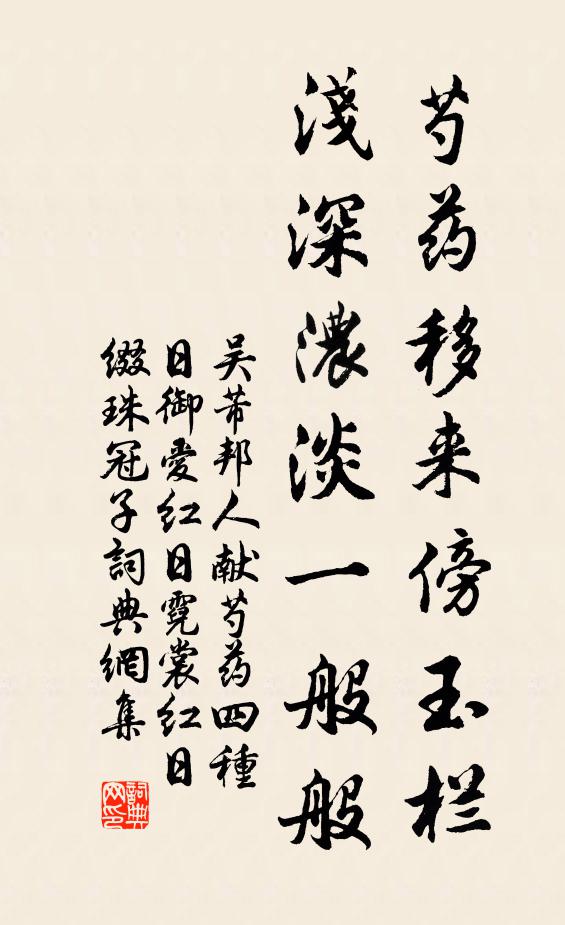 芍药移来傍玉栏
淺深濃淡一般般
吴芾邦人献芍药四種
日御爱红日霓裳红日
缀珠冠子詞典網集
詞典网印